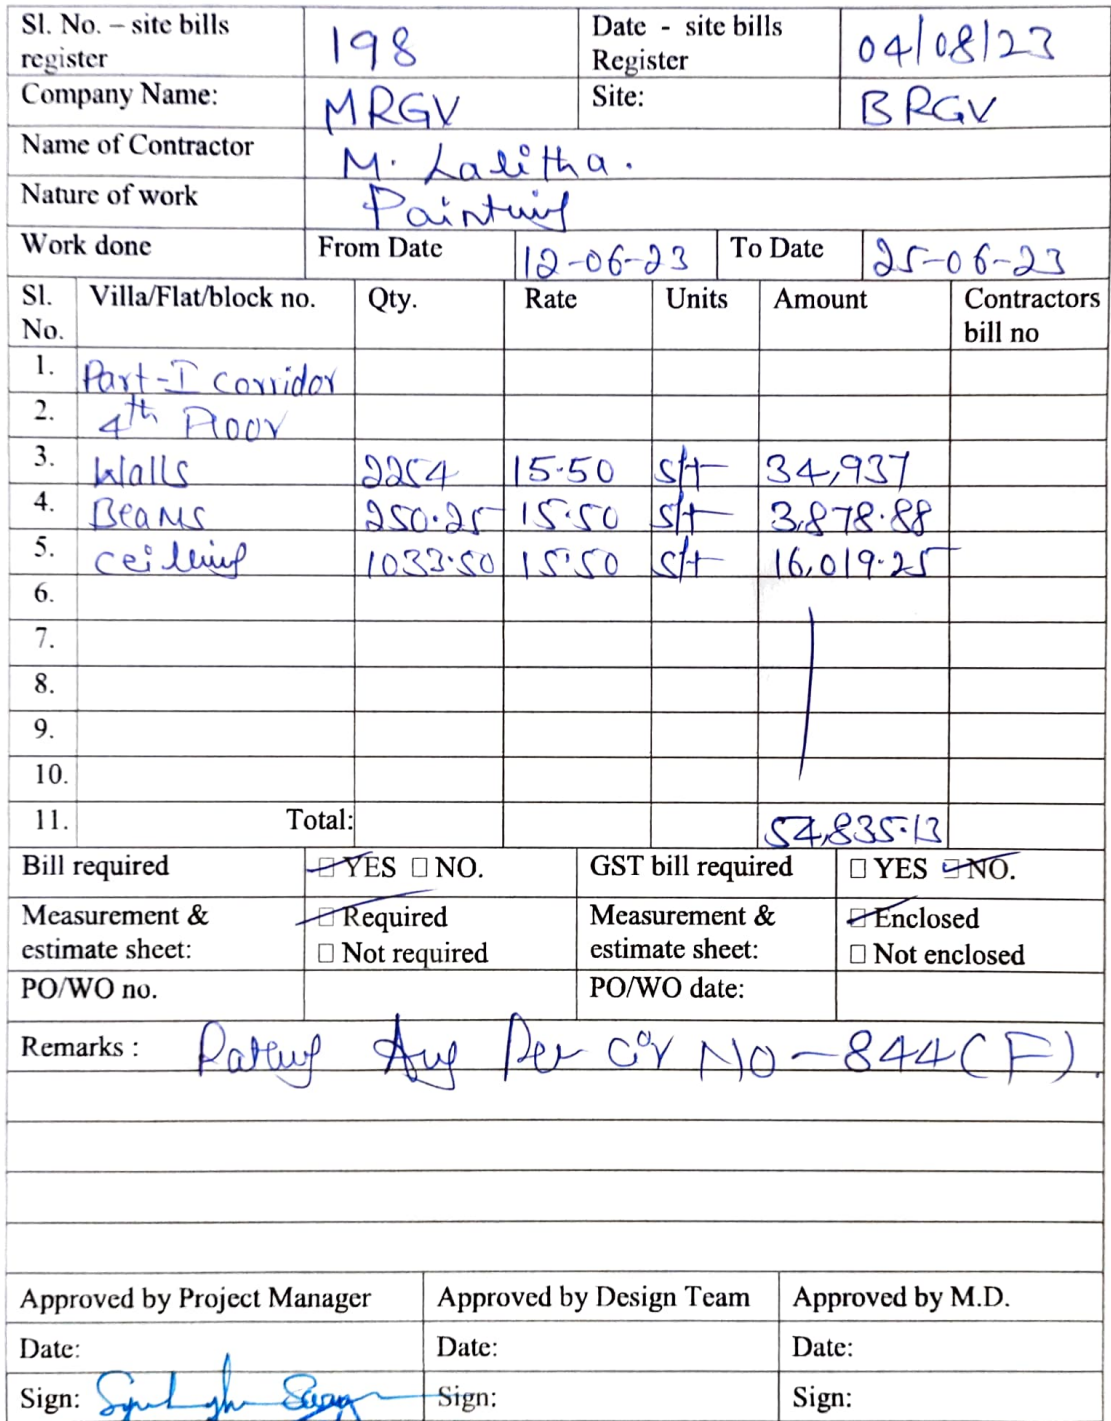 Sl. No. – site bills register 198 Date - site bills Register 04/08/23
Company Name: MRGV Site: BRGV
Name of Contractor M. Lalitha.
Nature of work Painting
Work done From Date 12-06-23 To Date 25-06-23
Sl. No. Villa/Flat/block no. Qty. Rate Units Amount Contractors bill no
1. Part-I corridor
2. 4th Floor
3. Walls 2254 15.50 sft 34,937
4. Beams 250.25 15.50 sft 3,878.88
5. ceilling 1033.50 15.50 sft 16,019.25
6.
7.
8.
9.
10.
11. Total: 54,835.13
Bill required YES NO. GST bill required YES NO.
Measurement & estimate sheet: Required Not required Measurement & estimate sheet: Enclosed Not enclosed
PO/WO no. PO/WO date:
Remarks : Per cir No - 844(F).
Approved by Project Manager Approved by Design Team Approved by M.D.
Date: Date: Date:
Sign: Sign: Sign: